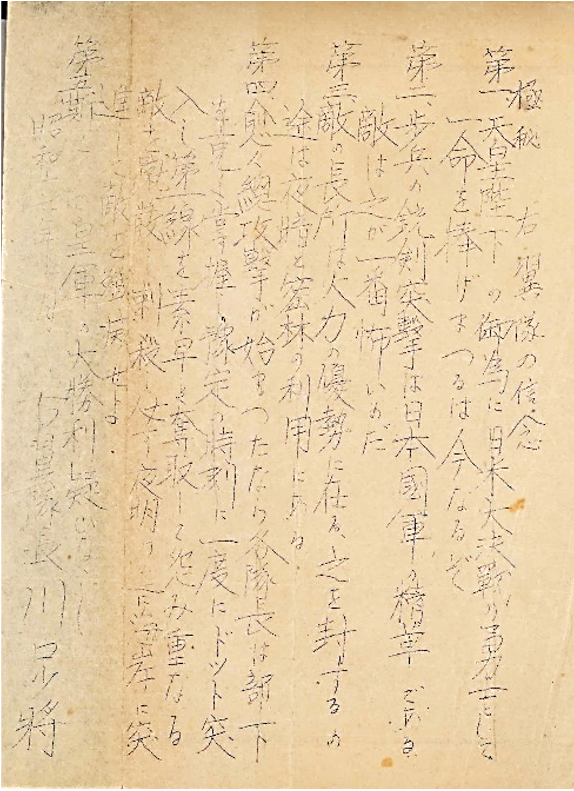 極秘 右翼隊の信念
第一、天皇陛下の御為に日米大決戦の勇士として
一命を捧げまつるは今なるぞ
第二、歩兵の銃剣突撃は日本國軍の精華である
敵は之が一番怖いのだ
第三、敵の長所は火力の優勢に在る、之を封ずるの
途は夜暗と密林の利用にある
第四、愈々總攻撃が始まつたなら各隊長は部下
を克く掌握し豫定の時刻に一度にドット突
入し第一線を素早く奪取して怨み重なる
敵を 刺殺し 夜明 に突
進して敵を 滅せよ.
第五、 皇軍の大勝利疑ひなし
昭和十七年
右翼隊長 川口少將